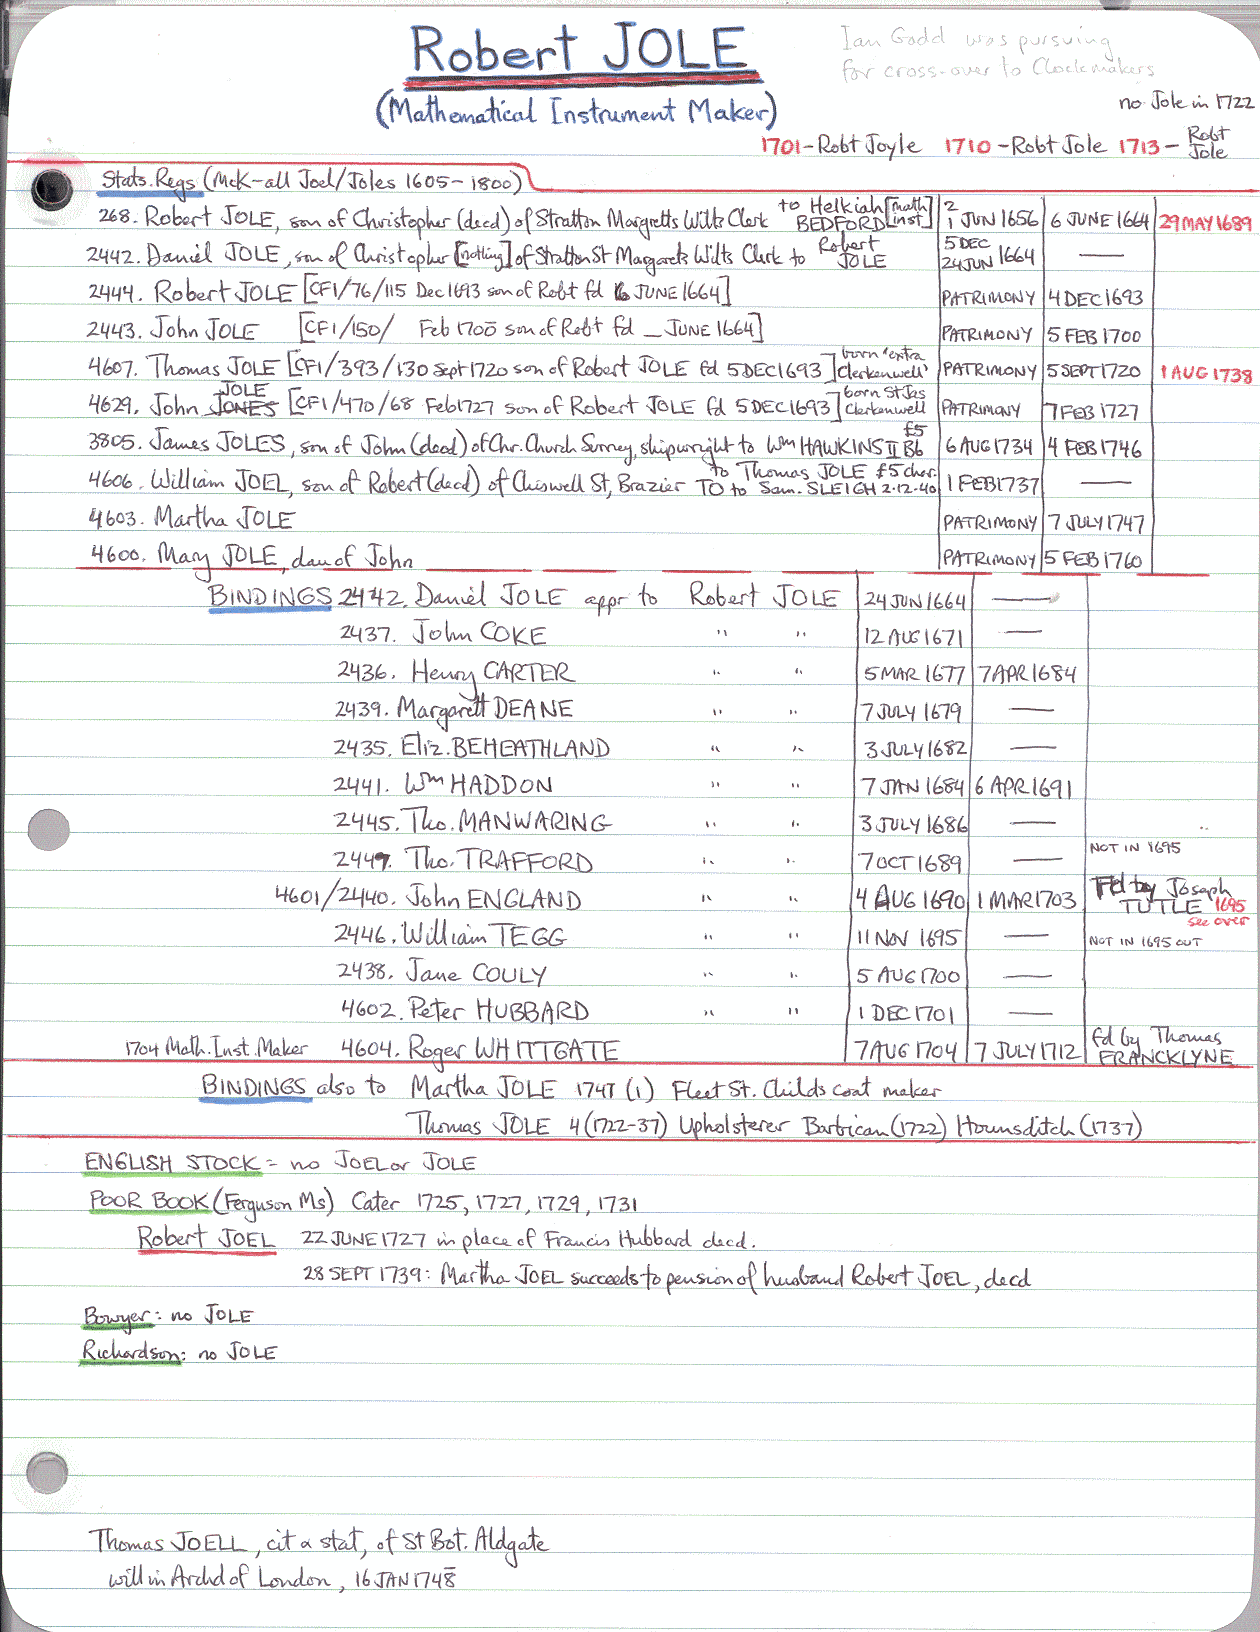 Robert JOLE
Ian Gadd was pursuing
for cross-over to Clockmakers
(Mathematical Instrument Maker)
no Jole in 1722
1701-Robt Joyle 1710-Robt Jole 1713- Robt Jole
Stats. Regs (McK-all Joel/Joles 1605-1800)
268. Robert JOLE, son of Christopher (decd) of Stratton Margretts Wilts Clerk to Helkiah BEDFORD [math inst] 2 1 JUN 1656 6 JUNE 1664 29 MAY 1689
2442. Daniel JOLE, son of Christopher [nothing] of Stratton St Margarets Wilts Clerk to Robert JOLE 5 DEC 24 JUN 1664 —
2444. Robert JOLE [CF1/76/115 Dec 1693 son of Robt fd 6 JUNE 1664] PATRIMONY 4 DEC 1693
2443. John JOLE [CF1/150/ Feb 1700 son of Robt fd _ JUNE 1664] PATRIMONY 5 FEB 1700
4607. Thomas JOLE [CF1/393/130 Sept 1720 son of Robert JOLE fd 5 DEC 1693] born 'extra Clerkenwell' PATRIMONY 5 SEPT 1720 1 AUG 1738
4629. John JONES JOLE [CF1/470/68 Feb 1727 son of Robert JOLE fd 5 DEC 1693] born St Jas Clerkenwell PATRIMONY 7 FEB 1727
3805. James JOLES, son of John (decd) of Chr. Church Surrey, shipwright to Wm HAWKINS II B6 £5 6 AUG 1734 4 FEB 1746
4606. William JOEL, son of Robert (decd) of Chiswell St, Brazier to Thomas JOLE £5 char. TO to Sam. SLEIGH 2.12.40 1 FEB 1737 —
4603. Martha JOLE PATRIMONY 7 JULY 1747
4600. Mary JOLE, dau of John PATRIMONY 5 FEB 1760
BINDINGS 2442. Daniel JOLE appr to Robert JOLE 24 JUN 1664 —
2437. John COKE " " 12 AUG 1671 —
2436. Henry CARTER " " 5 MAR 1677 7 APR 1684
2439. Margarett DEANE " " 7 JULY 1679 —
2435. Eliz. BEHEATHLAND " " 3 JULY 1682 —
2441. Wm HADDON " " 7 JAN 1684 6 APR 1691
2445. Tho. MANWARING " " 3 JULY 1686 —
2447. Tho. TRAFFORD " " 7 OCT 1689 — NOT IN 1695
4601/2440. John ENGLAND " " 4 AUG 1690 1 MAR 1703 Fd by Joseph TUTLE 1695 see over
2446. William TEGG " " 11 NOV 1695 — NOT IN 1695 OUT
2438. Jane COULY " " 5 AUG 1700 —
4602. Peter HUBBARD " " 1 DEC 1701 —
1704 Math. Inst. Maker 4604. Roger WHITTGATE 7 AUG 1704 7 JULY 1712 fd by Thomas FRANCKLYNE
BINDINGS also to Martha JOLE 1747 (1) Fleet St. Childs coat maker
Thomas JOLE 4 (1722-37) Upholsterer Barbican (1722) Hounsditch (1737)
ENGLISH STOCK = no JOEL or JOLE
POOR BOOK (Ferguson Ms) Cater 1725, 1727, 1729, 1731
Robert JOEL 22 JUNE 1727 in place of Francis Hubbard decd.
28 SEPT 1739: Martha JOEL succeeds to pension of husband Robert JOEL, decd
Bowyer: no JOLE
Richardson: no JOLE
Thomas JOELL, cit a stat, of St Bot. Aldgate
will in Archd of London, 16 JAN 1748